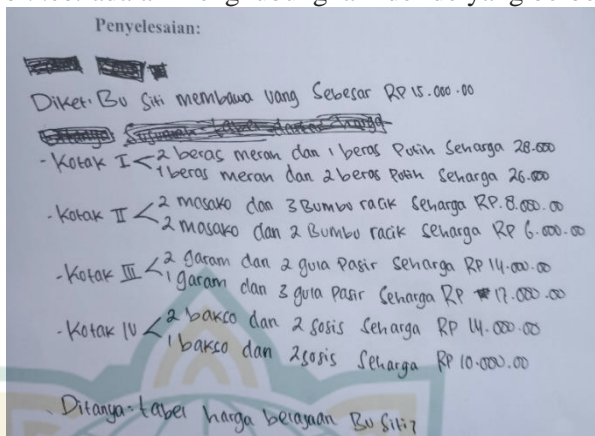 Penyelesaian:
Diket: Bu Siti membawa uang Sebesar RP 15.000.00
- Kotak I < 2 beras merah dan 1 beras Putih Seharga 28.000
1 beras merah dan 2 beras Putih Seharga 26.000
- Kotak II < 2 masako dan 3 Bumbu racik Seharga RP. 8.000.00
2 masako dan 2 Bumbu racik Seharga RP 6.000.00
- Kotak III < 2 garam dan 2 gula Pasir Seharga RP 14.000.00
1 garam dan 3 gula Pasir Seharga RP 17.000.00
- Kotak IV < 2 bakso dan 2 sosis Seharga RP 14.000.00
1 bakso dan 2 sosis Seharga RP 10.000.00
Ditanya: tabel harga belajaan Bu Siti?